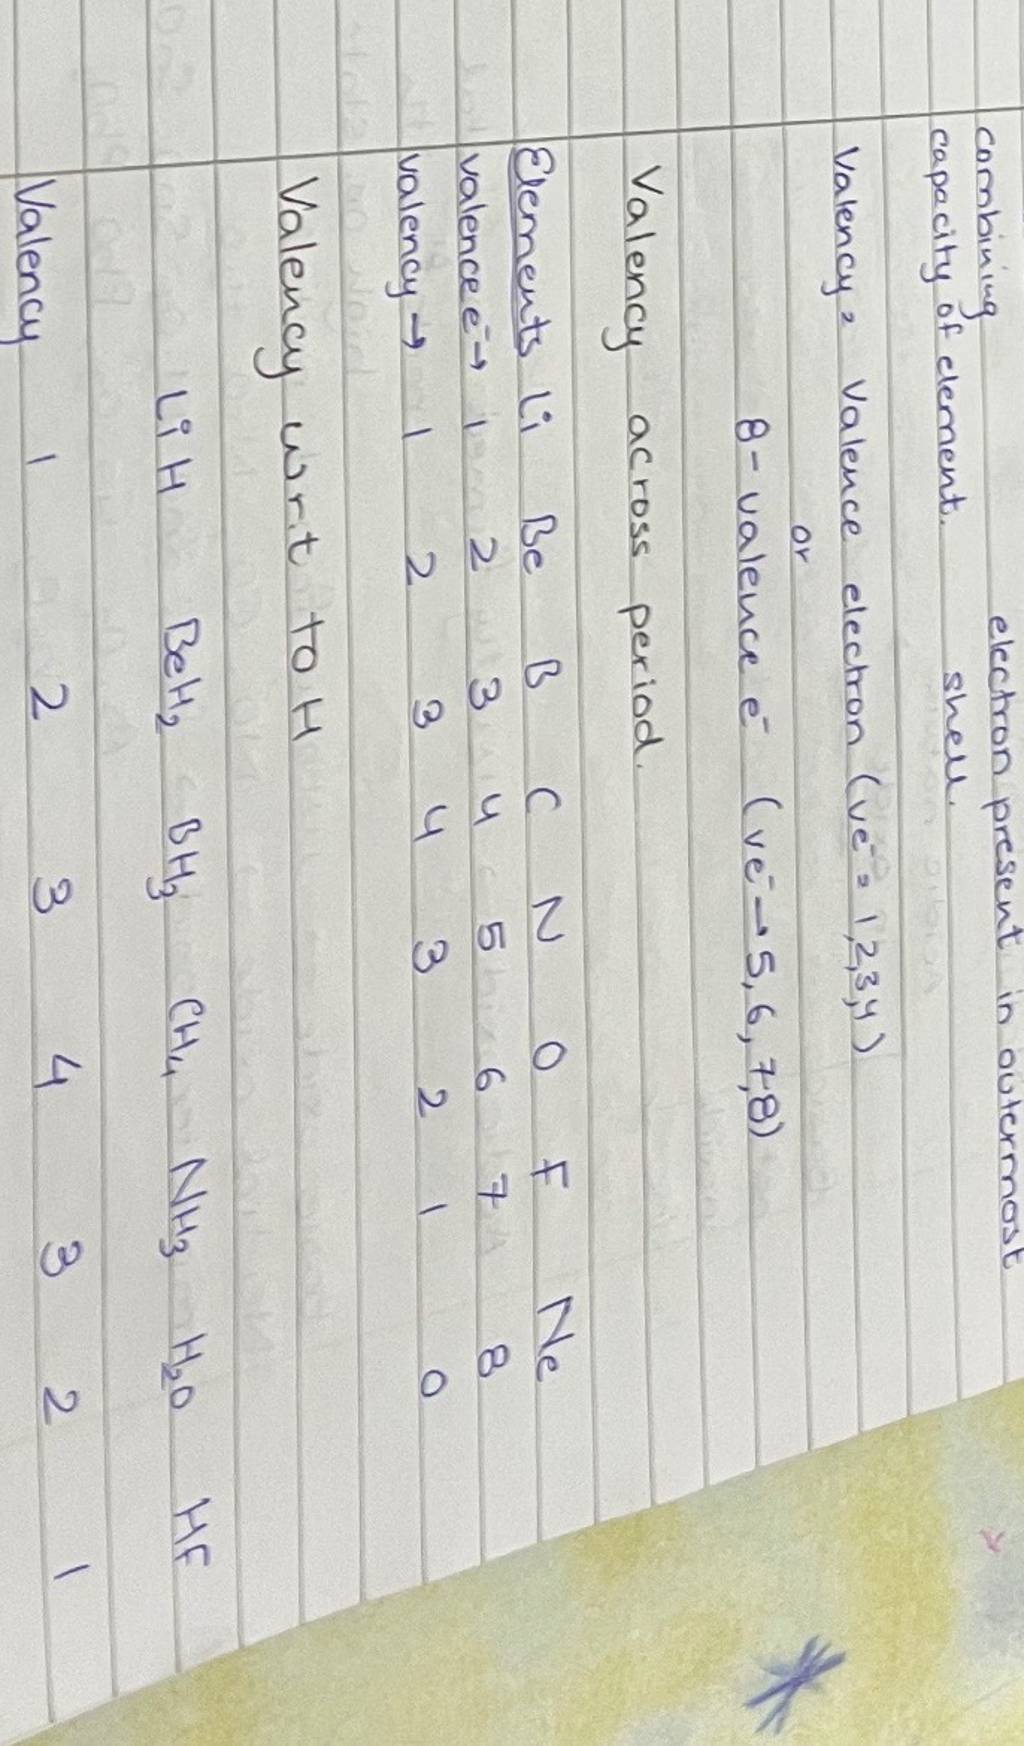 combining electron present in outermost
capacity of element. shell.
Valency = Valence electron (ve⁻ = 1,2,3,4)
or
8 - valence e⁻ (ve⁻ → 5, 6, 7, 8)
Valency across period.
Elements Li Be B C N O F Ne
valence e⁻ → 1 2 3 4 5 6 7 8
valency → 1 2 3 4 3 2 1 0
Valency w.r.t to H
LiH BeH₂ BH₃ CH₄ NH₃ H₂O HF
Valency 1 2 3 4 3 2 1